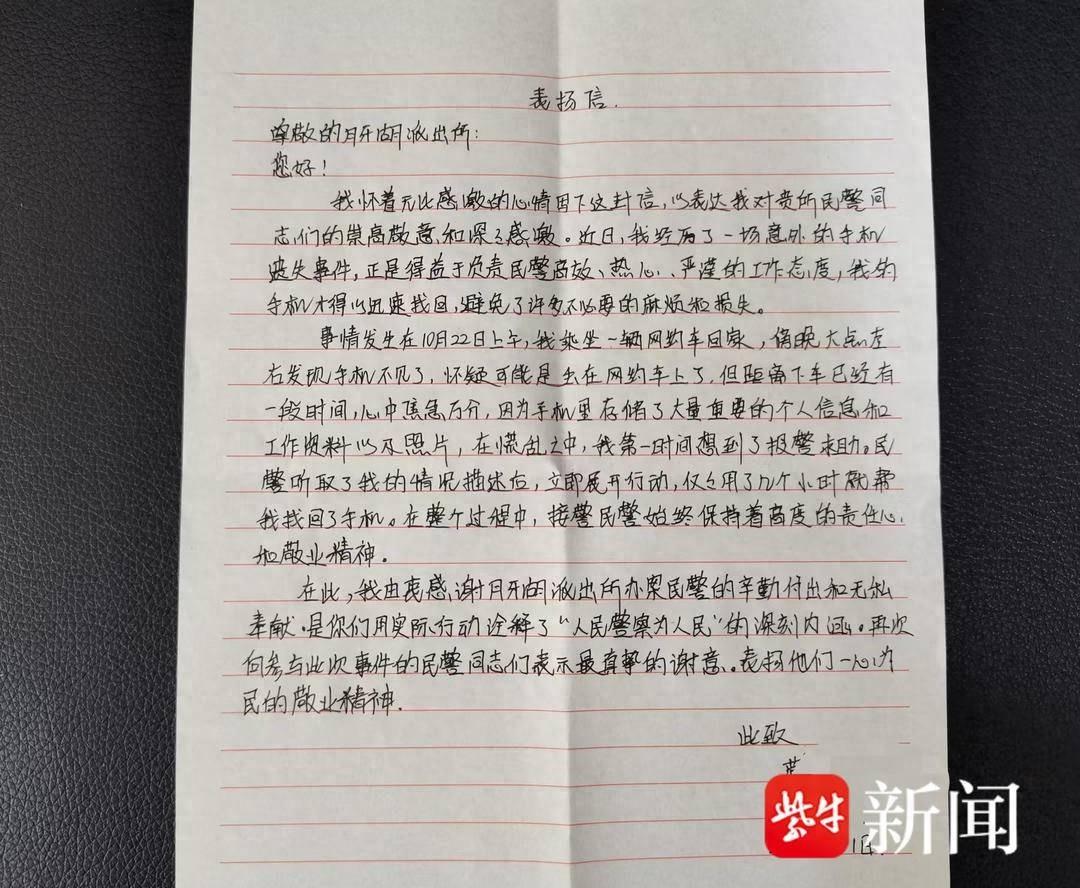 表扬信.
尊敬的月牙湖派出所:
您好!
我怀着无比感激的心情写下这封信,以表达我对贵所民警同
志们的崇高敬意和深深感激。近日,我经历了一场意外的手机
遗失事件,正是得益于负责民警高效、热心、严谨的工作态度,我的
手机才得以迅速找回,避免了许多不必要的麻烦和损失。
事情发生在10月22日上午,我乘坐一辆网约车回家,傍晚六点左
右发现手机不见了,怀疑可能是丢在网约车上了,但距离下车已经有
一段时间,心中焦急万分,因为手机里存储了大量重要的个人信息和
工作资料以及照片,在慌乱之中,我第一时间想到了报警求助。民
警听取了我的情况描述后,立即展开行动,仅仅用了几个小时就帮
我找回了手机。在整个过程中,接警民警始终保持着高度的责任心
和敬业精神。
在此,我由衷感谢月牙湖派出所办案民警的辛勤付出和无私
奉献.是你们用实际行动诠释了"人民警察为人民"的深刻内涵。再次
向参与此次事件的民警同志们表示最真挚的谢意。表扬他们一心为
民的敬业精神.
此致
紫牛新闻